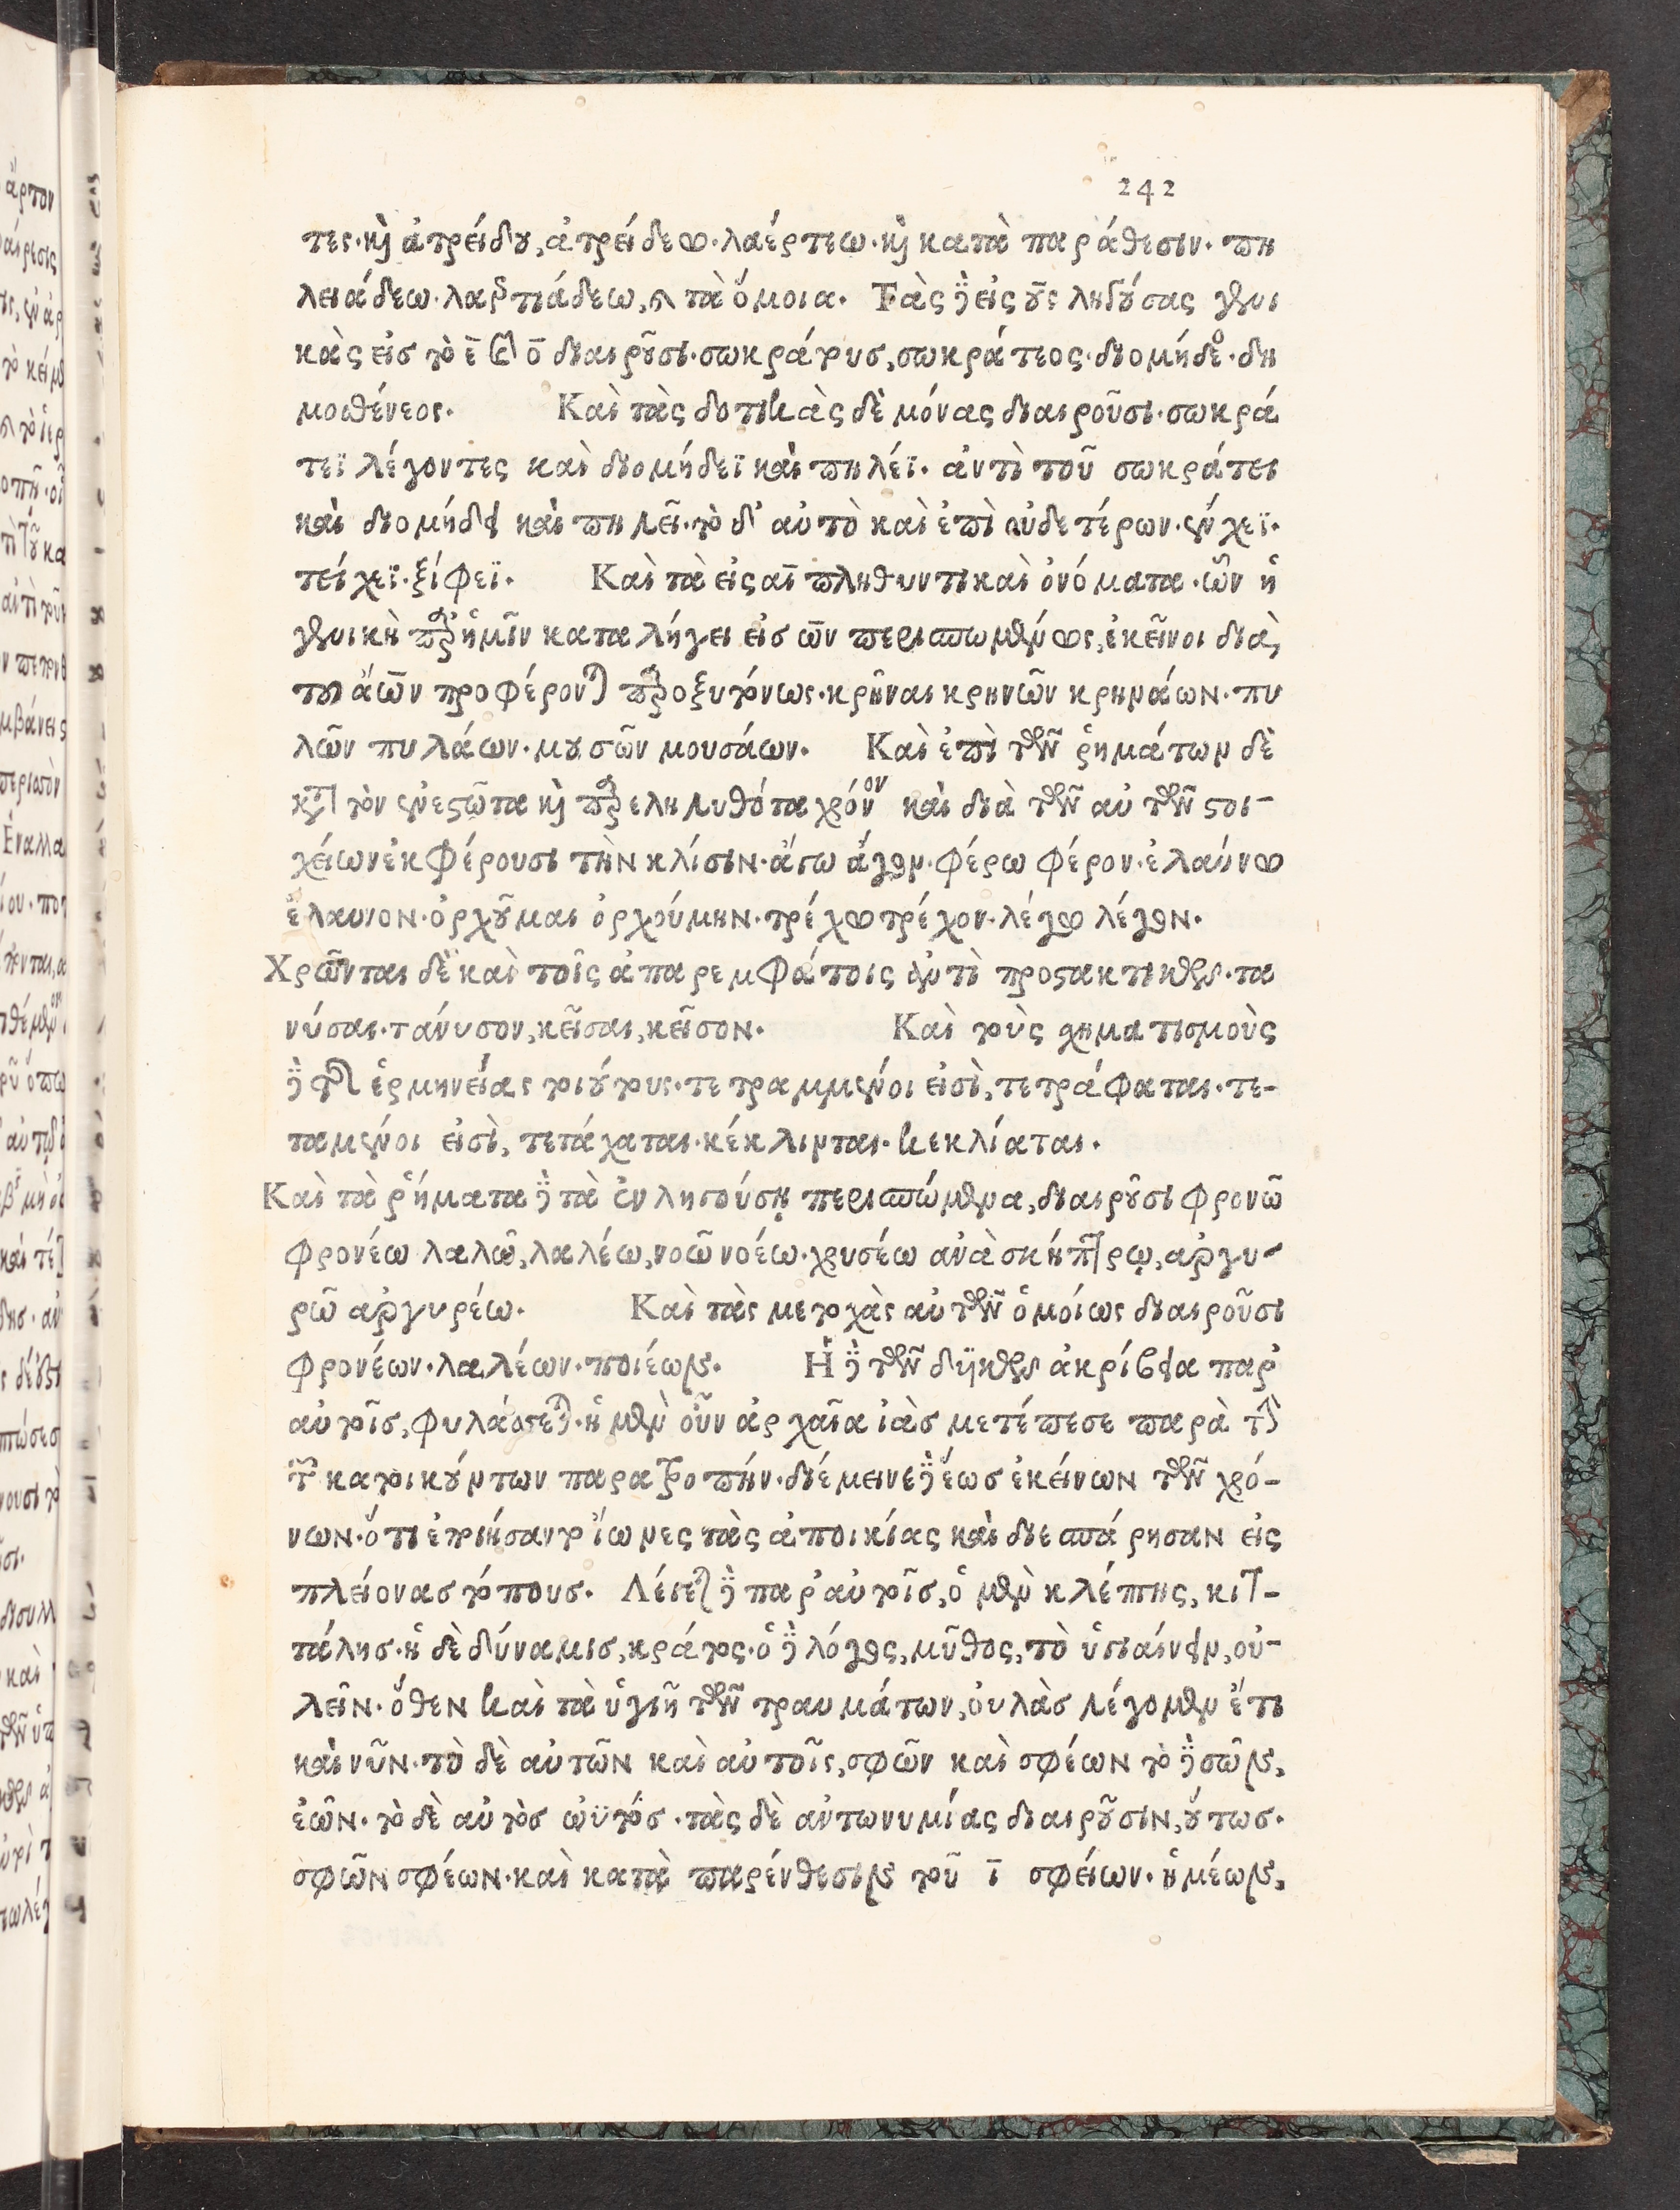 242
τες· καὶ ἀτρείδου, ἀτρείδεω· λαέρτεω· καὶ κατὰ παράθεσιν· πη
λειάδεω· λαερτιάδεω, καὶ τὰ ὅμοια. Τὰς δὲ εἰς ους ληγούσας γενι
κὰς εἰσ τὸ ε̄ καὶ ο̄ διαιροῦσι· σωκράτουσ, σωκράτεος· διομήδεος· δη
μοσθένεος. Καὶ τὰς δοτικὰς δὲ μόνας διαιροῦσι· σωκρά
τεϊ λέγοντες καὶ διομήδεϊ καὶ πηλέϊ· ἀντὶ τοῦ σωκράτει
καὶ διομήδει καὶ πηλεῖ· τὸ δ' αὐτὸ καὶ ἐπὶ οὐδετέρων· ἔγχεϊ·
τείχεϊ· ξίφεϊ. Καὶ τὰ εἰς αῑ πληθυντικαὶ ὀνόματα· ὧν ἡ
γενικὴ παρ' ἡμῖν καταλήγει εἰσ ῶν περισπωμένως, ἐκεῖνοι διὰ,
τοῦ άων προφέρονται παροξυτόνως· κρῆναι κρηνῶν κρηνάων· πυ
λῶν πυλάων· μουσῶν μουσάων. Καὶ ἐπὶ τῶν ῥημάτων δὲ
κατὰ τὸν ἐνεστῶτα καὶ παρεληλυθότα χρόνον καὶ διὰ τῶν αὐτῶν στοι-
χείων ἐκφέρουσι τὴν κλίσιν· ἄγω ἄγον· φέρω φέρον· ἐλαύνω
ἔλαυνον· ὀρχοῦμαι ὀρχούμην· τρέχω τρέχον· λέγω λέγον.
Χρῶνται δὲ καὶ τοῖς ἀπαρεμφάτοις ἀντὶ προστακτικῶν· τα
νύσαι· τάνυσον, κεῖσαι, κεῖσον. Καὶ τοὺς χηματισμοὺς
δὲ τῆς ἑρμηνείας τοιούτους· τετραμμένοι εἰσὶ, τετράφαται· τε-
ταμένοι εἰσὶ, τετάχαται· κέκλινται· κεκλίαται.
Καὶ τὰ ῥήματα δὲ τὰ ἐν ληγούσῃ περισπώμενα, διαιροῦσι φρονῶ
φρονέω λαλῶ, λαλέω, νοῶ νοέω· χρυσέω ἀνὰ σκήπτρῳ, ἀργυ-
ρῶ ἀργυρέω. Καὶ τὰς μετοχὰς αὐτῶν ὁμοίως διαιροῦσι
φρονέων· λαλέων· ποιέων. Ἡ δὲ τῶν ἀκρίβεια παρ'
αὐτοῖσ, φυλάσσεται· ἡ μὲν οὖν ἀρχαῖα ἰὰσ μετέπεσε παρὰ τὴν
τῶν κατοικούντων παρατροπήν· διέμεινε δὲ ἕωσ ἐκείνων τῶν χρό-
νων· ὅτι ἐποιήσαντο ἴωνες τὰς ἀποικίας καὶ διεσπάρησαν εἰς
πλείονασ τόπουσ. Λέγεται δὲ παρ' αὐτοῖσ, ὁ μὲν κλέπτης, κιτ-
τάλησ· ἡ δὲ δύναμισ, κράτος· ὁ δὲ λόγος, μῦθος, τὸ ὑγιαίνειν, οὐ-
λεῖν· ὅθεν καὶ τὰ ὑγιῆ τῶν τραυμάτων, οὐλὰσ λέγομεν ἔτι
καὶ νῦν· τὸ δὲ αὐτῶν καὶ αὐτοῖς, σφῶν καὶ σφέων τὸ δὲ σῶν,
ἑῶν· τὸ δὲ αὐτὸσ ωὐτόσ· τὰς δὲ ἀντωνυμίας διαιροῦσιν, οὕτωσ·
σφῶν σφέων· καὶ κατὰ παρένθεσιν τοῦ ῑ σφείων· ἡμέων,